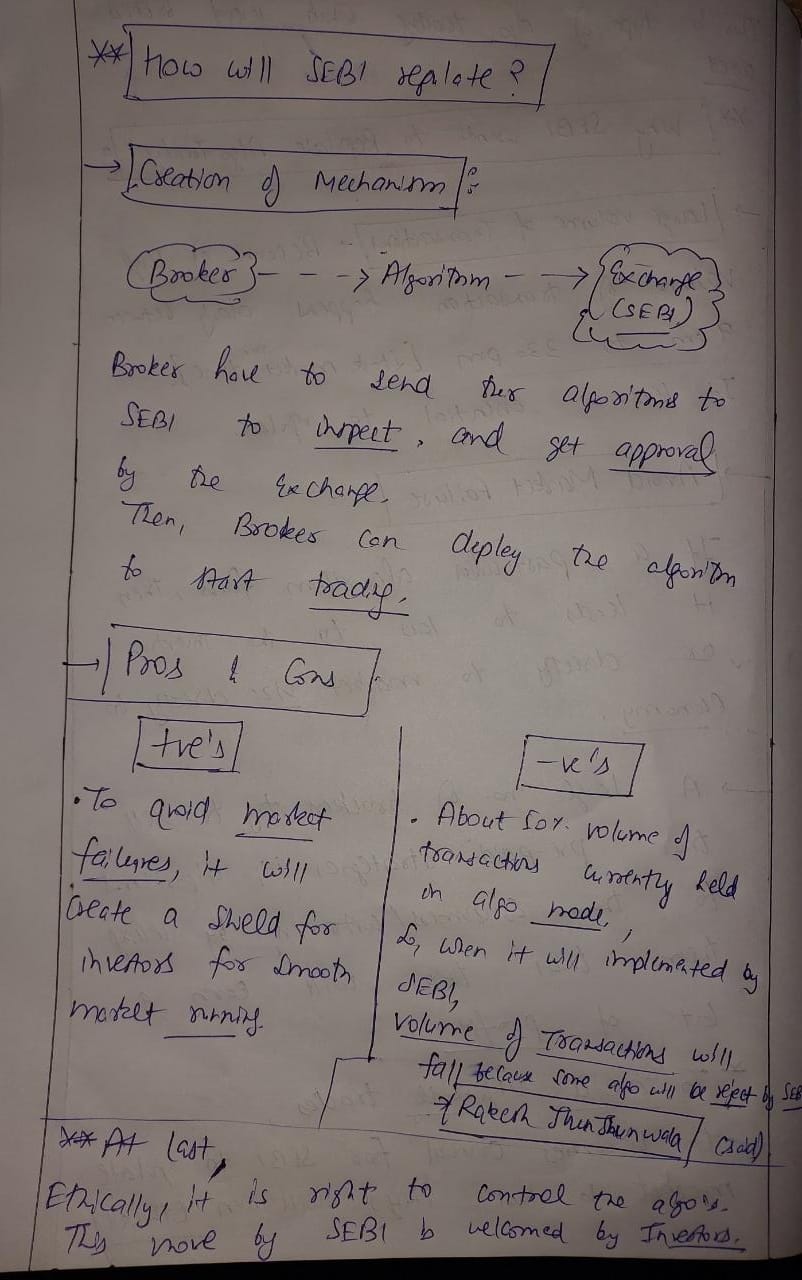 ** How will SEBI regulate?
→ Creation of Mechanism:
Broker - - - -> Algorithm - - -> Exchange
(SEBI)
Broker have to send their algorithms to
SEBI to inspect, and get approval
by the Exchange.
Then, Broker can deploy the algorithm
to start trading.
→ Pros & Cons
+ve's
• To avoid market
failures, it will
create a shield for
investors for smooth
market running.
-ve's
• About 50% volume of
transactions currently held
in algo mode,
So, when it will implemented by
SEBI,
Volume of Transactions will
fall because some algo will be reject by SEBI
* Rakesh JhunJhunwala (said)
** At last,
Ethically, it is right to control the algo's.
This move by SEBI is welcomed by Investors.